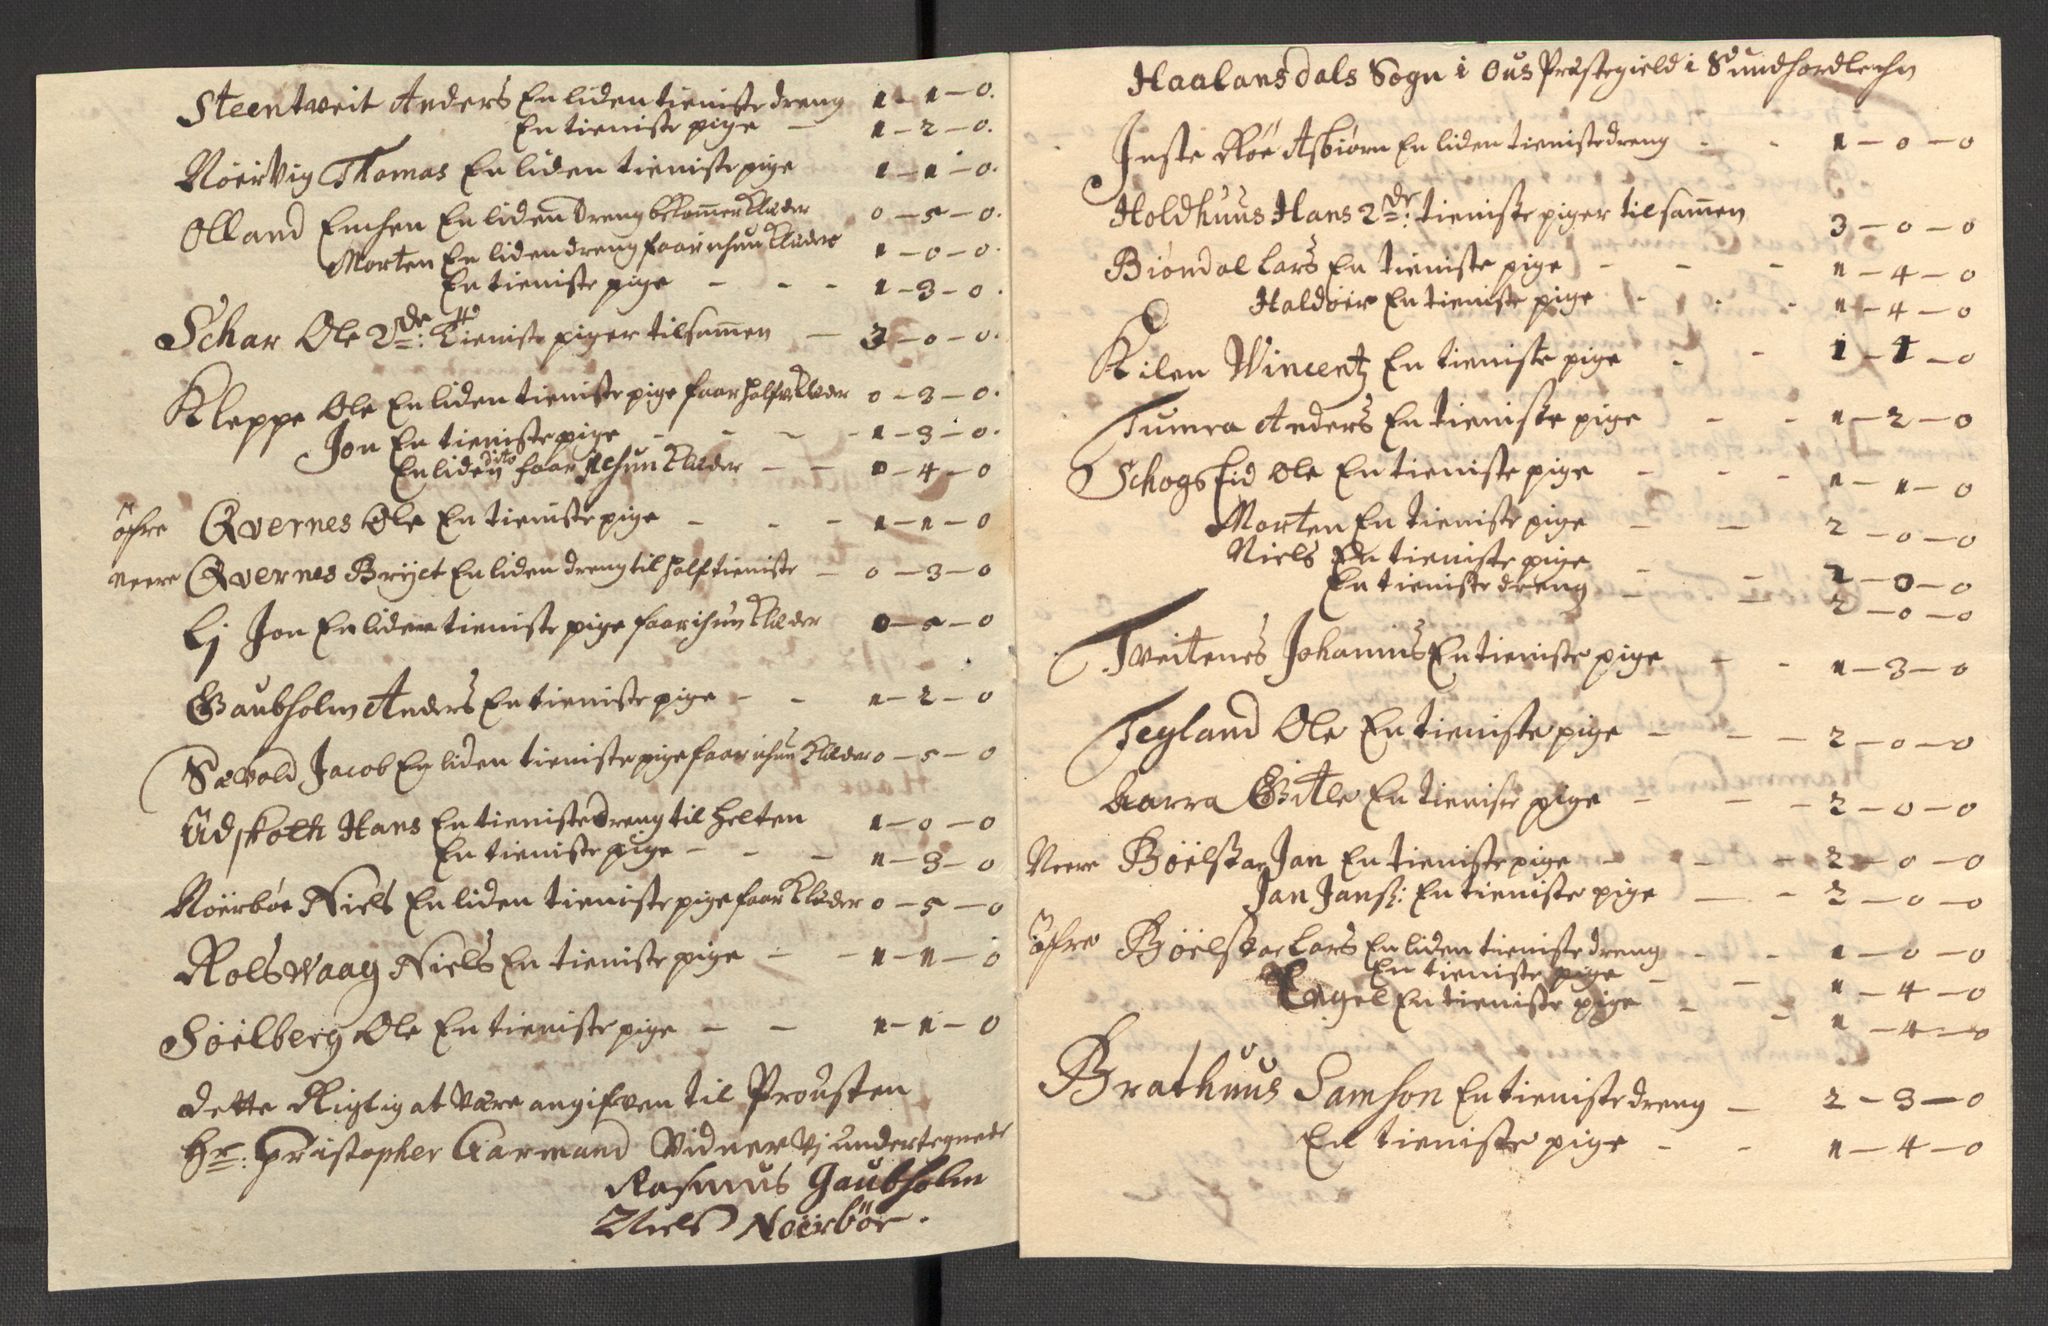 Steentweit Anders En liden tieniste dreng 1 - 1 - 0.
En tieniste pige - 1 - 2 - 0.
Nöirvig Thomas En liden tieniste pige 1 - 1 - 0.
Olland En liden dreng bekommer Klæder 0 - 5 - 0.
Morten En liden dreng faar Klæder 1 - 0 - 0.
En tieniste pige - - - 1 - 3 - 0.
Schar Ole 2de: tieniste piger tilsammen - 3 - 0 - 0.
Kleppe Ole En liden tieniste pige faar half Klæder 0 - 3 - 0.
Jon En tieniste pige - - - 1 - 3 - 0.
En liden dito faar Klæder - - 0 - 4 - 0
öfre Qvernes Ole En tieniste pige - - - 1 - 1 - 0
Neere Qvernes Bryct En liden dreng til half tieniste - 0 - 3 - 0
Ej Jon En liden tieniste pige faar Klæder 0 - 5 - 0
Gaubholm Anders En tieniste pige - - 1 - 2 - 0
Sævold Jacob En liden tieniste pige faar Klæder 0 - 5 - 0
Udskoth Hans En tieniste dreng til helten 1 - 0 - 0
En tieniste pige - - - 1 - 3 - 0
Nöirböe Niels En liden tieniste pige faar Klæder 0 - 5 - 0
Rolswaag Niels En tieniste pige - - 1 - 1 - 0
Söelberg Ole En tieniste pige - - 1 - 1 - 0
dette Rigtig at være angifven til Prousten
Hr: Christopher Garmand Vidner Vj undertegnede
Rasmus Gaubholm
Niels Noërböe.
Haalansdals Sogn i Ous Præstegield i Sundhordlehn
Inste Röe Asbiörn En liden tieniste dreng - - 1 - 0 - 0
Holdhuus Hans 2de: tieniste piger tilsammen 3 - 0 - 0
Biöndal Lars En tieniste pige - - - 1 - 4 - 0
Haldoër En tieniste pige - - - 1 - 4 - 0
Kilen Wincentz En tieniste pige - - 1 - 1 - 0
Tumra Anders En tieniste pige - - 1 - 2 - 0
Schogseid Ole En tieniste pige - - - 1 - 1 - 0
Morten En tieniste pige - - 2 - 0 - 0
Niels En tieniste pige - - 2 - 0 - 0
En tieniste dreng - - 2 - 0 - 0
Tveitenes Johannis En tieniste pige - - 1 - 3 - 0
Tegland Ole En tieniste pige - - - 2 - 0 - 0
Gitle En tieniste pige - - - 2 - 0 - 0
Neere Böëlstae Jan En tieniste pige - - - 2 - 0 - 0
Jan Jans: En tieniste pige - - 2 - 0 - 0
öfre Böëlstae Lars En liden tieniste dreng - - 1 - 0 - 0
En tieniste pige - - 1 - 4 - 0
Engel En tieniste pige - - 1 - 4 - 0
Brathuus Samson En tieniste dreng - 2 - 3 - 0
En tieniste pige - - 1 - 4 - 0